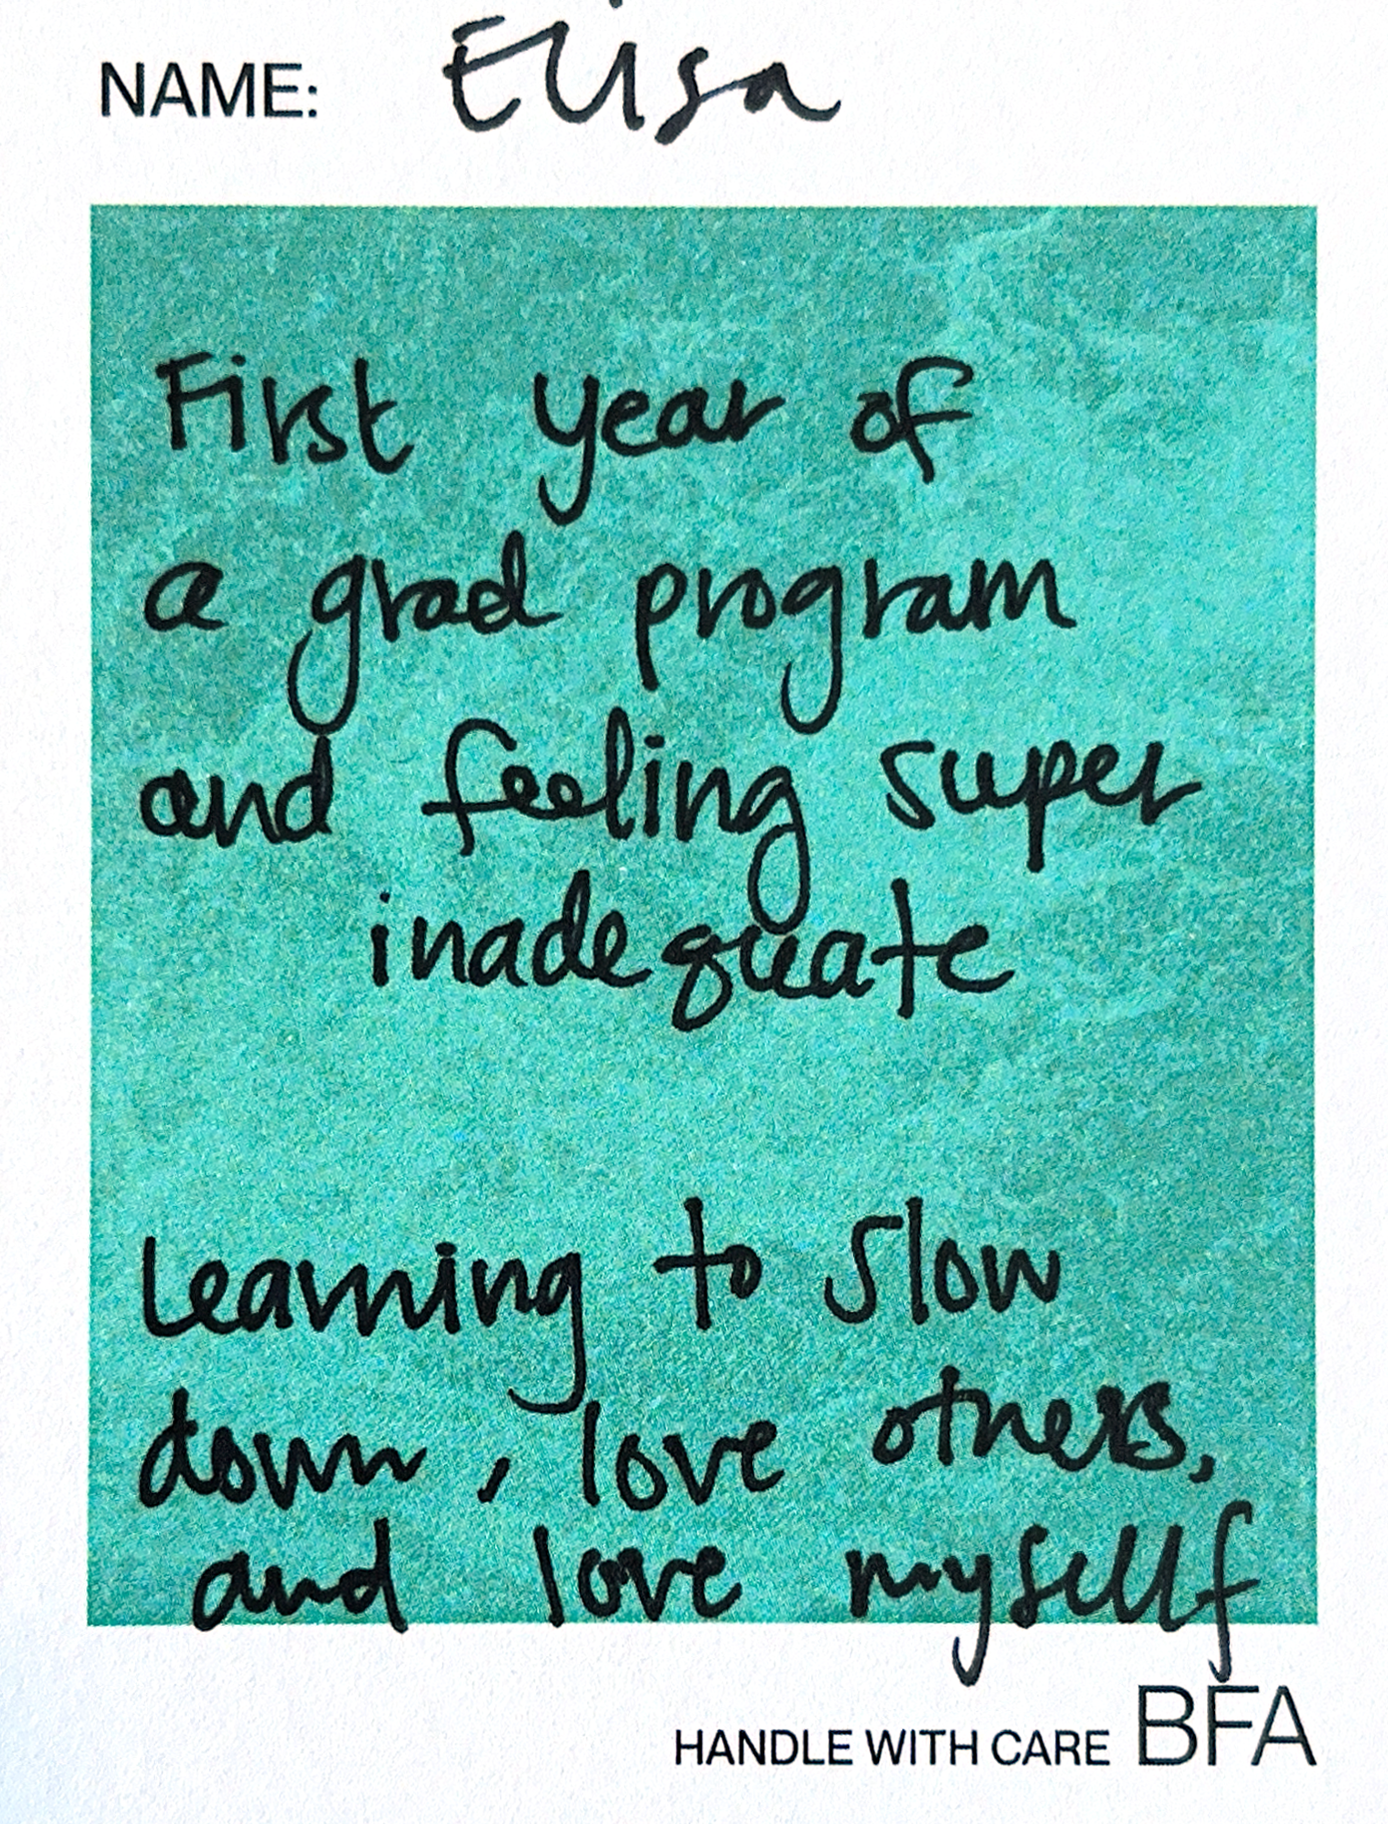 NAME: Elisa
First year of
a grad program
and feeling super
inadequate
Learning to slow
down, love others,
and love myself
HANDLE WITH CARE BFA